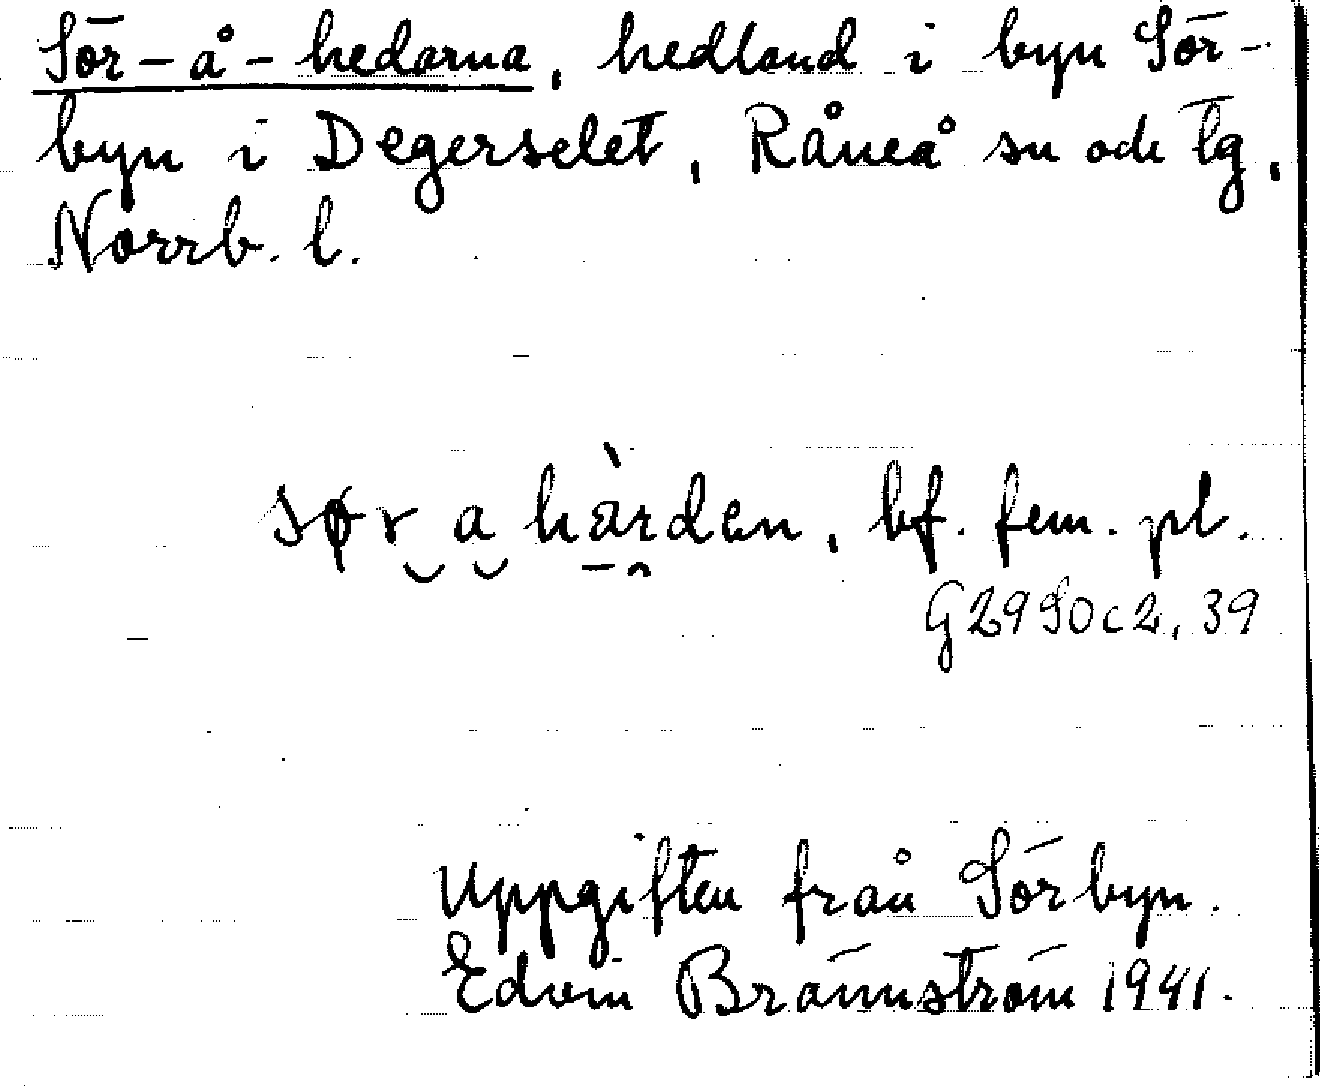 Sör-å-hedarna, hedland i byn Sör-
byn i Degerselet, Råneå sn och tg,
Norrb. l.
sør a hàrden, bf. fem. pl.
G29 SO c 2, 39
Uppgiften från Sörbyn.
Edvin Brännström 1941.